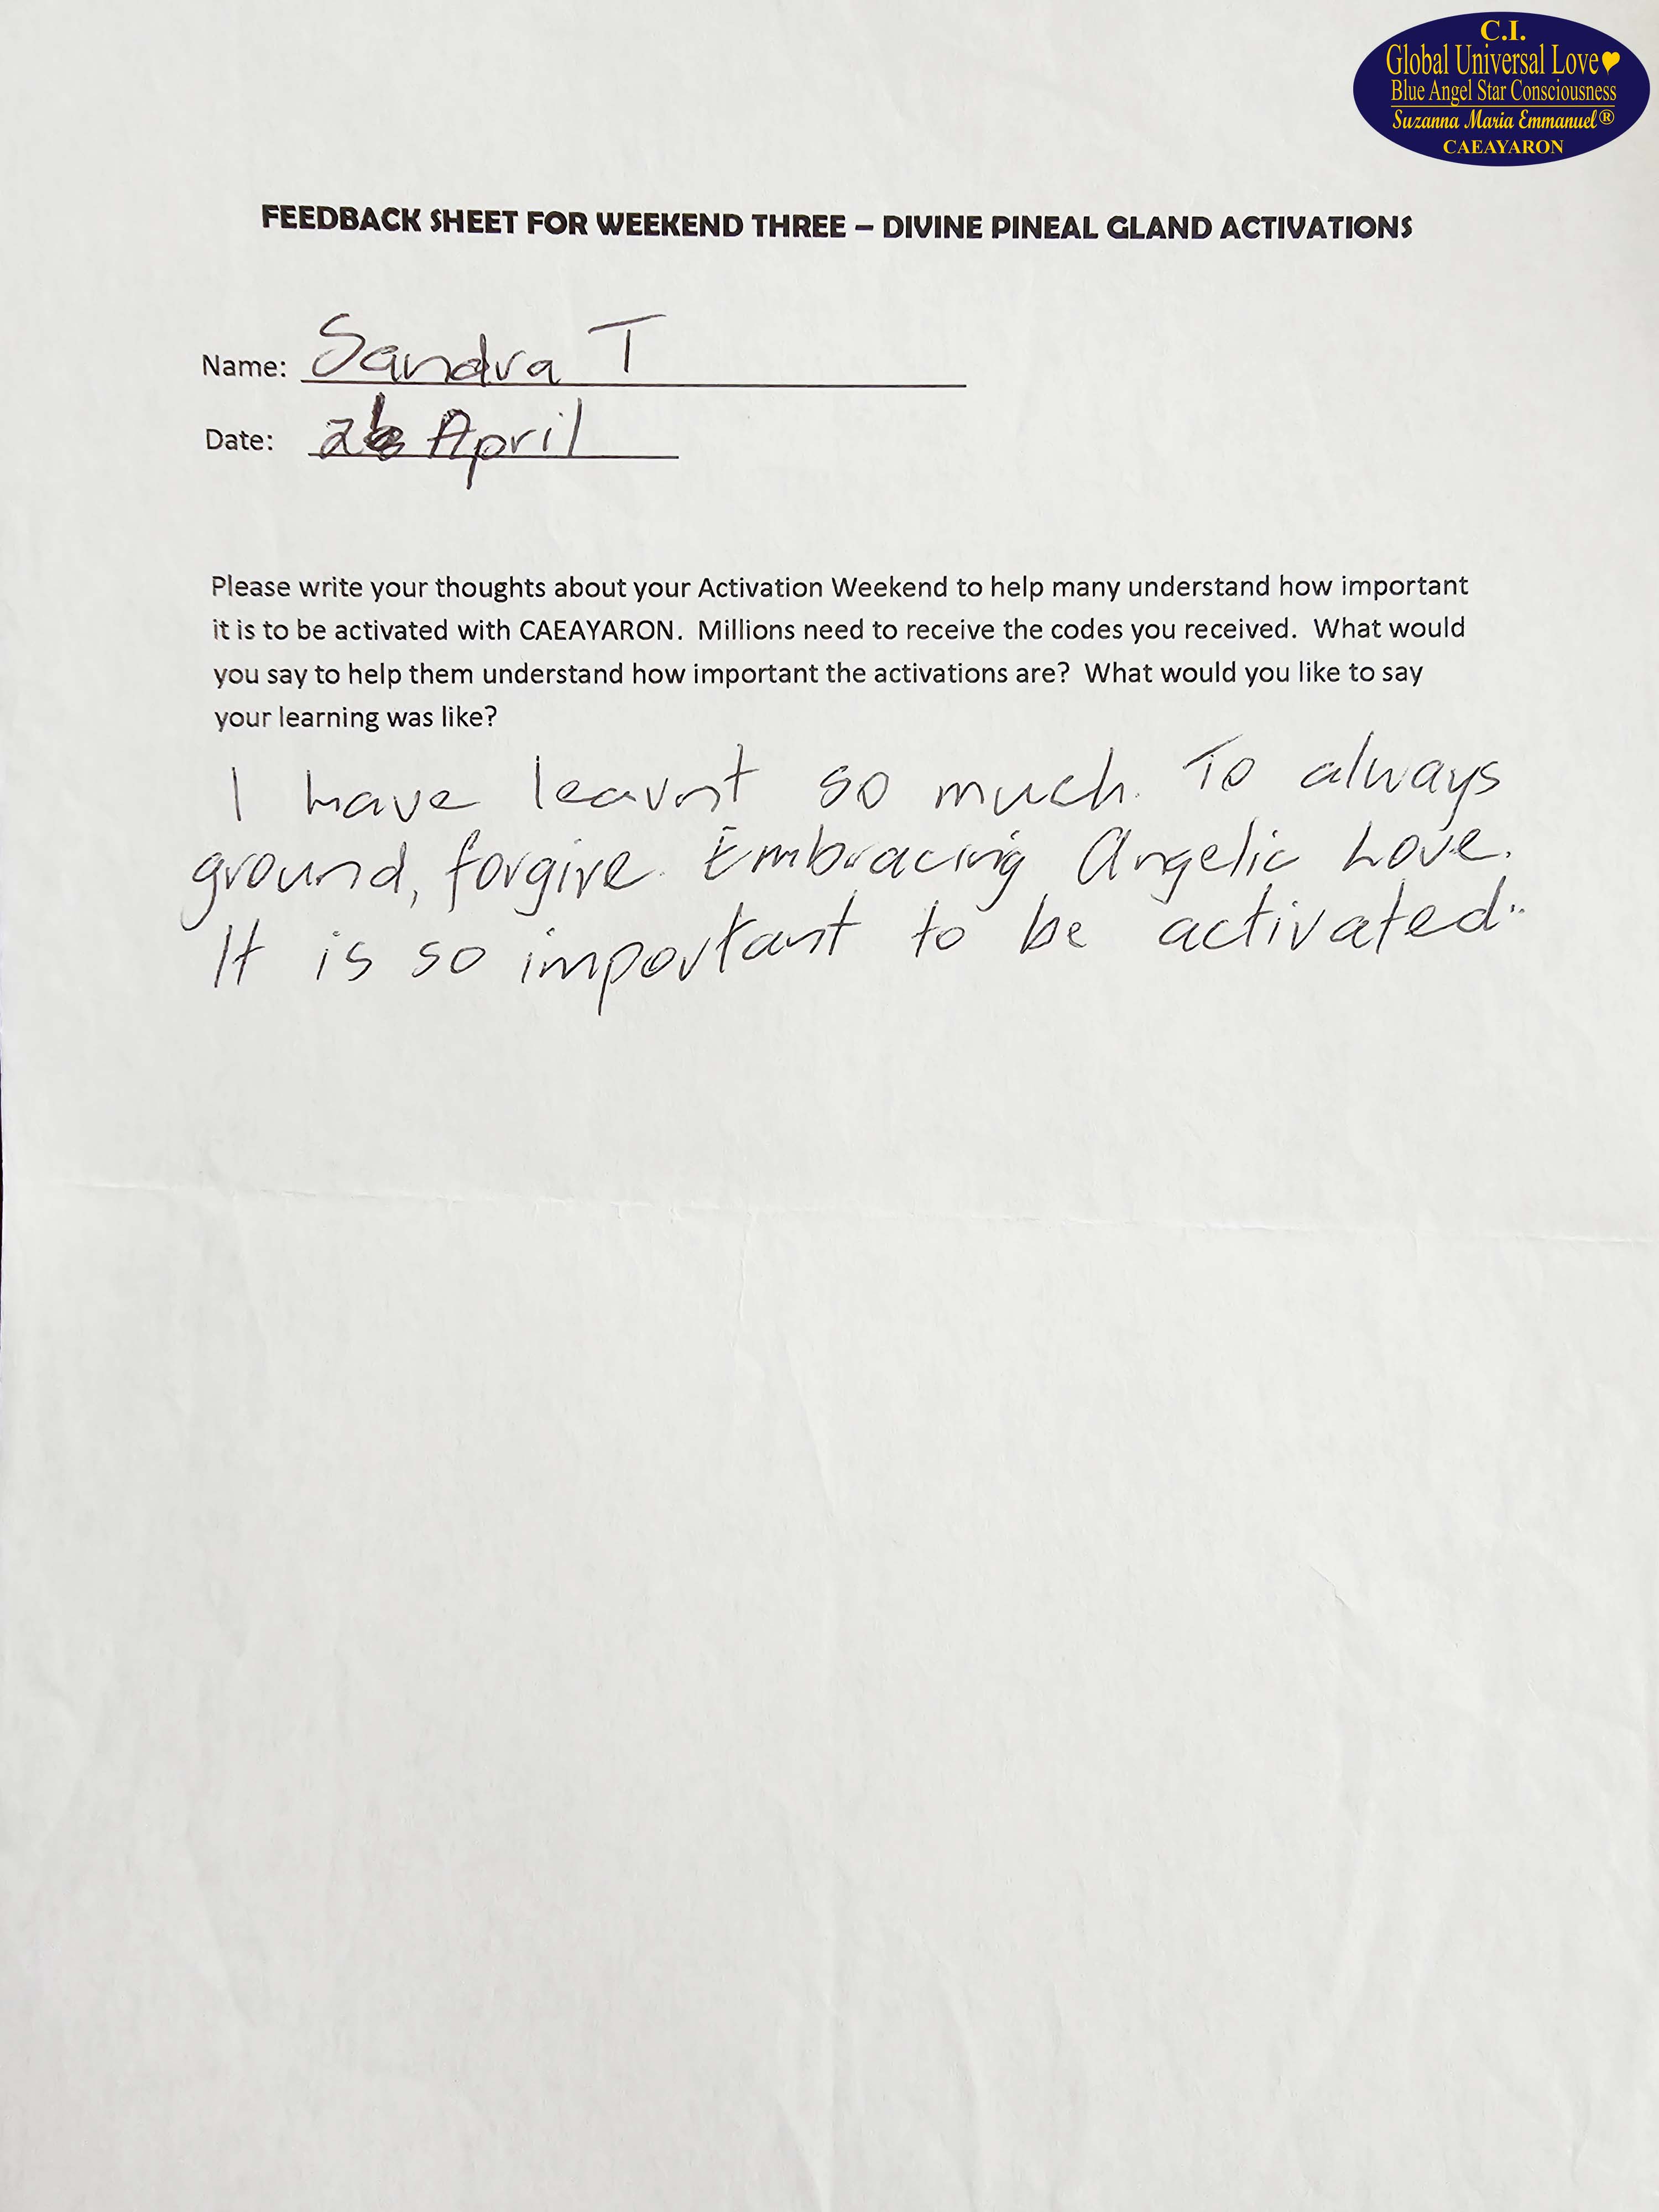 C.I.
Global Universal Love
Blue Angel Star Consciousness
Suzanna Maria Emmanuel®
CAEAYARON
FEEDBACK SHEET FOR WEEKEND THREE – DIVINE PINEAL GLAND ACTIVATIONS
Name: Sandra T
Date: 26 April
Please write your thoughts about your Activation Weekend to help many understand how important
it is to be activated with CAEAYARON.  Millions need to receive the codes you received.  What would
you say to help them understand how important the activations are?  What would you like to say
your learning was like?
I have learnt so much. To always
ground, forgive. Embracing Angelic Love.
It is so important to be activated..